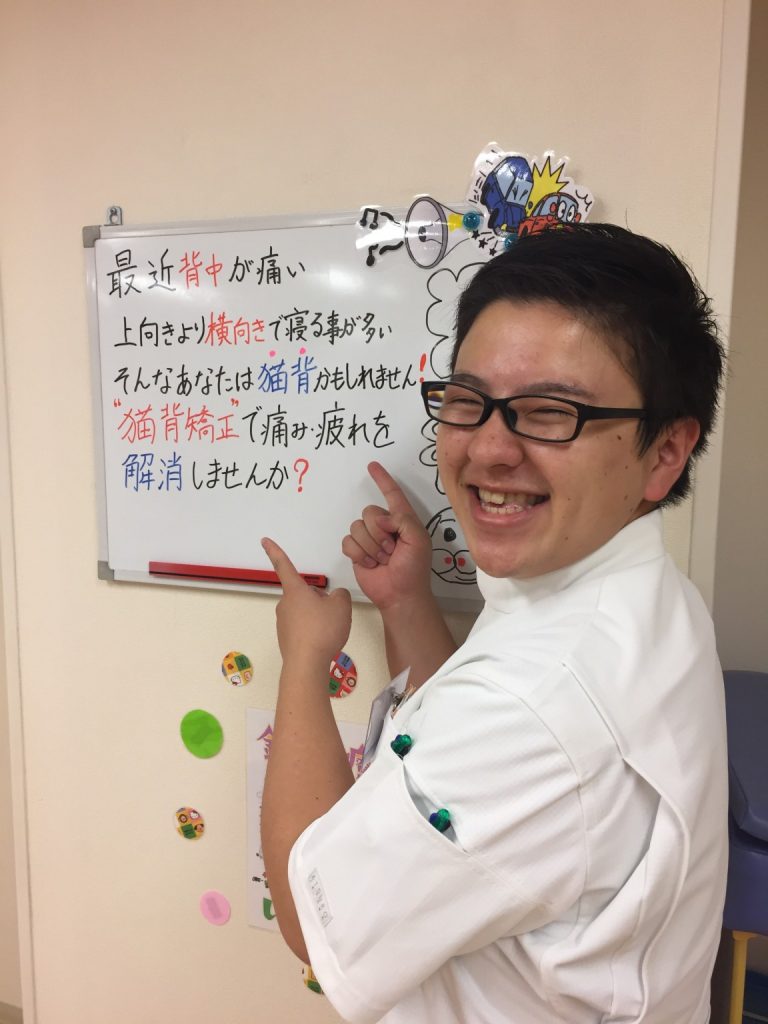 最近背中が痛い
上向きより横向きで寝る事が多い
そんなあなたは猫背かもしれません!
"猫背矯正"で痛み・疲れを
解消しませんか?